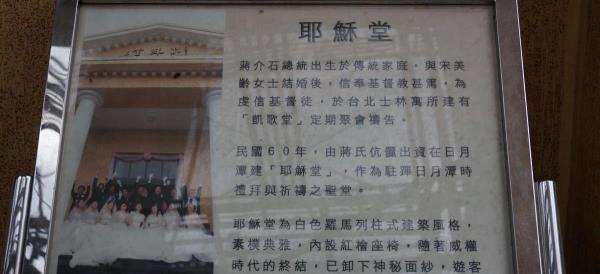 耶穌堂
蔣介石總統出生於傳統家庭，與宋美
齡女士結婚後，信奉基督教甚篤，為
虔信基督徒，於台北士林寓所建有
「凱歌堂」定期聚會禱告。
民國60年，由蔣氏伉儷出資在日月
潭建「耶穌堂」，作為駐蹕日月潭時
禮拜與祈禱之聖堂。
耶穌堂為白色羅馬列柱式建築風格，
素樸典雅，內設紅檜座椅，隨著威權
時代的終結，已卸下神秘面紗，遊客